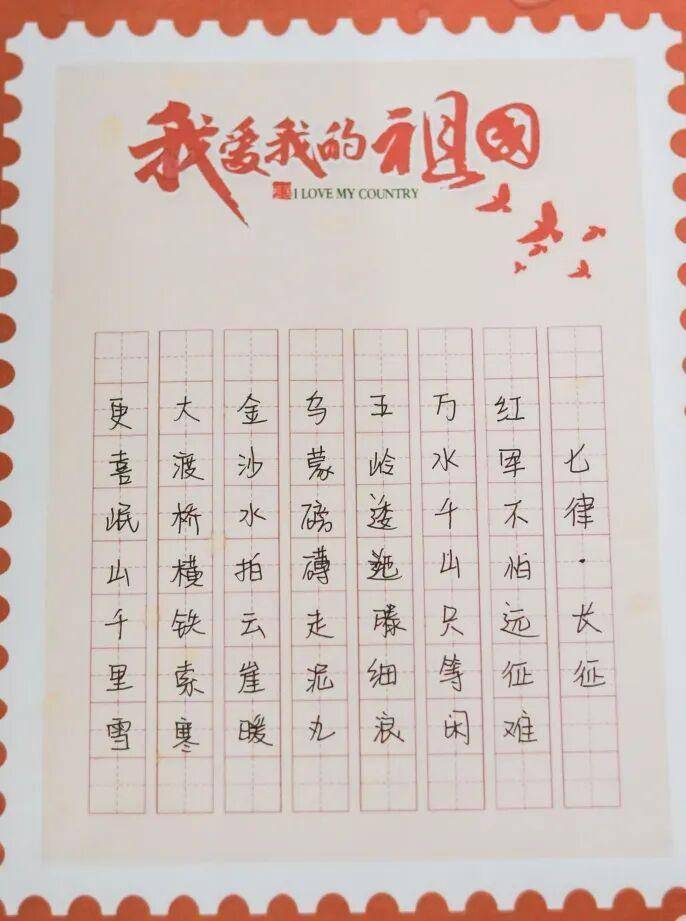 我爱我的祖国
I LOVE MY COUNTRY
七律·长征
红军不怕远征难
万水千山只等闲
五岭逶迤腾细浪
乌蒙磅礴走泥丸
金沙水拍云崖暖
大渡桥横铁索寒
更喜岷山千里雪